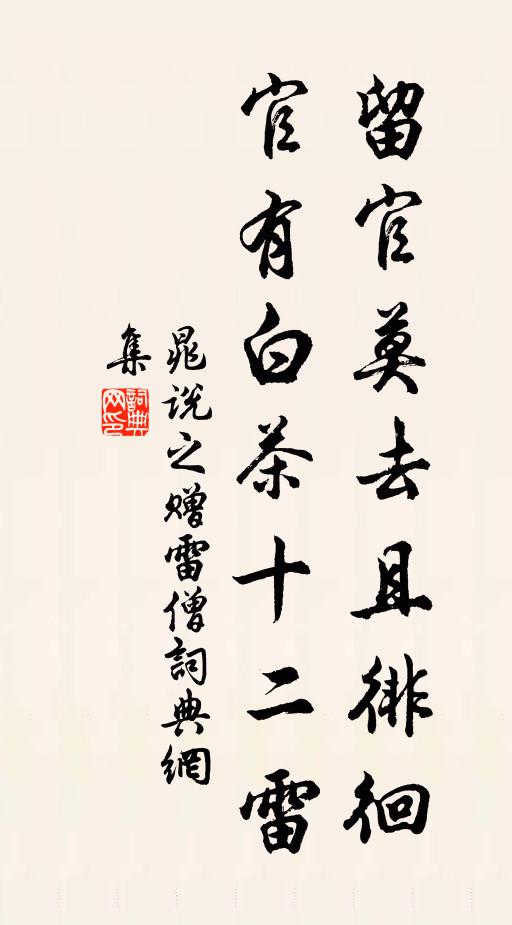 留官莫去且徘徊
官有白茶十二雷
晁說之贈雷僧詞典網
集
詞典网印